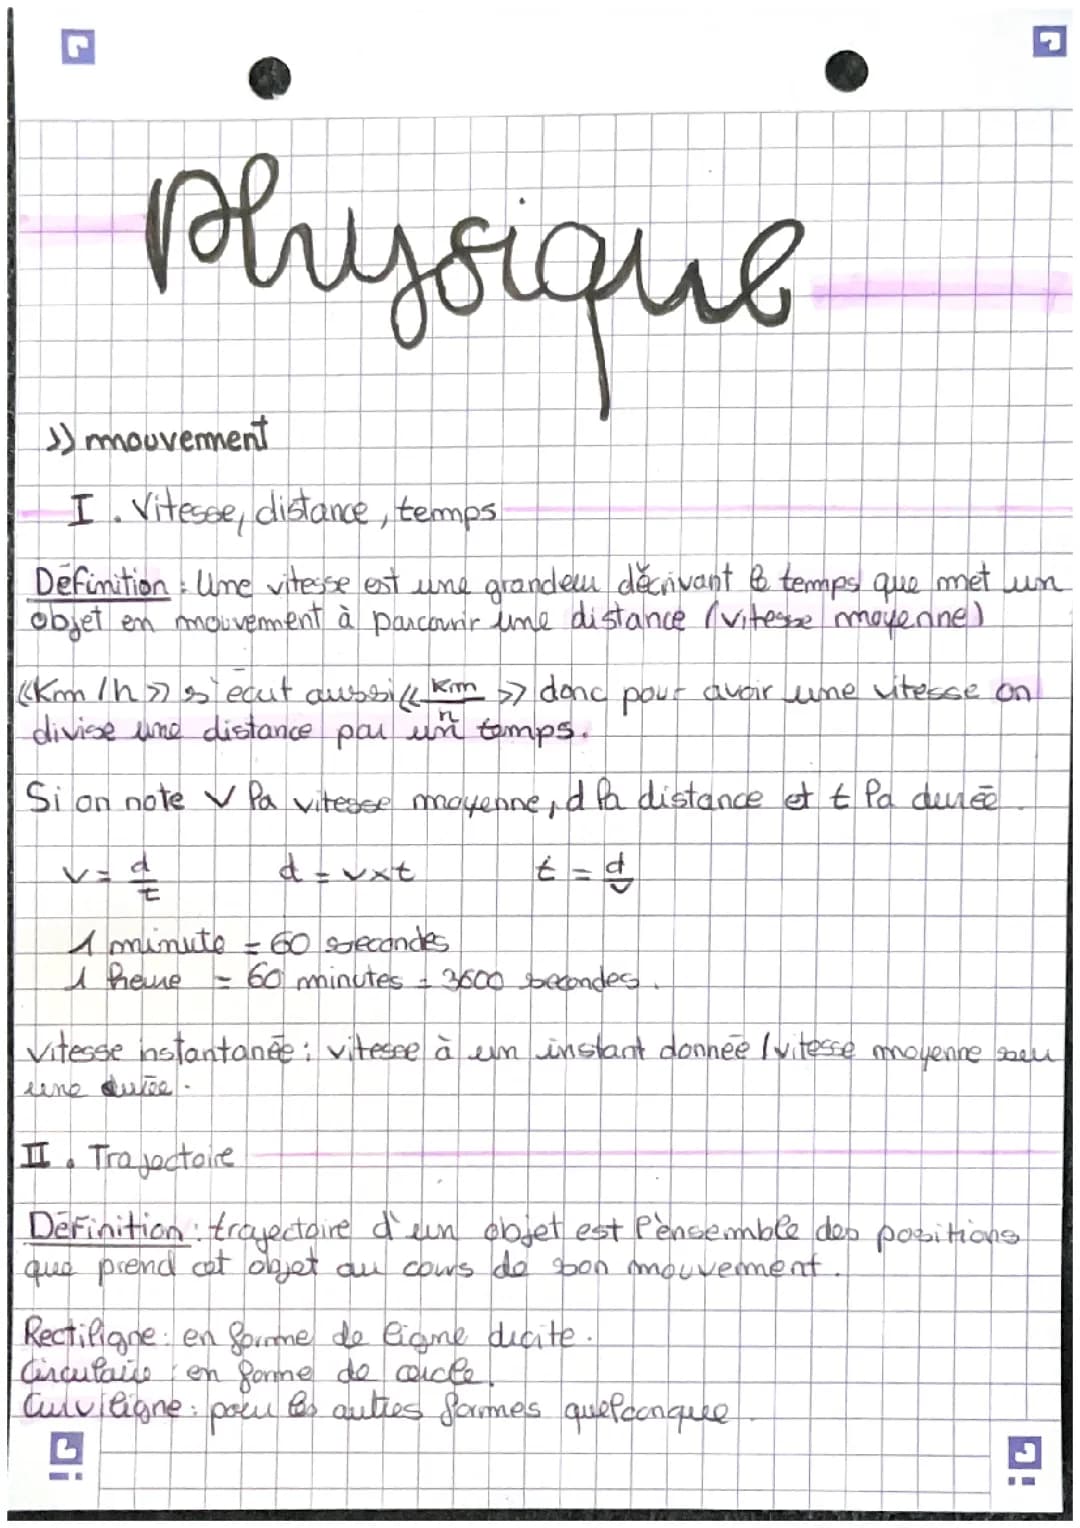 Physique
>> mouvement
I. Vitesse, distance, temps
Définition : Une vitesse est une grandeur décrivant le temps que met un
objet en mouvement à parcourir une distance (vitesse moyenne)
«Km/h» s'écrit aussi « Km/h » donc pour avoir une vitesse on
divise une distance par un temps.
Si on note v la vitesse moyenne, d la distance et t la durée.
v = d/t d = v×t t = d/v
1 minute = 60 secondes
1 heure = 60 minutes = 3600 secondes.
Vitesse instantanée : vitesse à un instant donnée / vitesse moyenne sur
une durée.
II. Trajectoire
Définition : trajectoire d'un objet est l'ensemble des positions
que prend cet objet au cours de son mouvement.
Rectiligne : en forme de ligne droite.
Circulaire : en forme de cercle.
Curviligne : pour les autres formes quelconque.